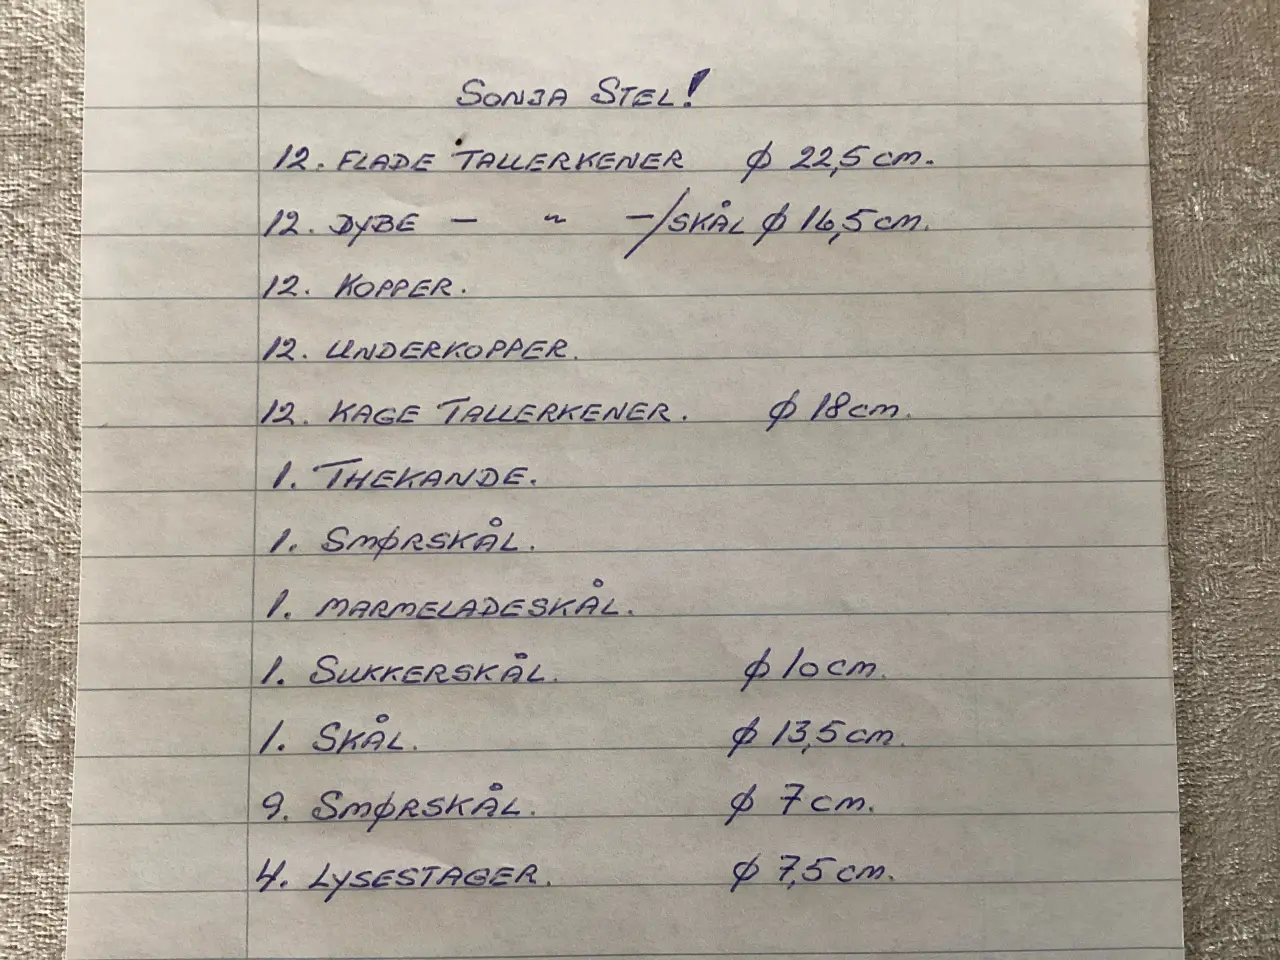 SONJA STEL!
12. FLADE TALLERKENER ϕ 22,5 cm.
12. DYBE — " —/SKÅL ϕ 16,5 cm.
12. KOPPER.
12. UNDERKOPPER.
12. KAGE TALLERKENER. ϕ 18 cm.
1. THEKANDE.
1. SMØRSKÅL.
1. MARMELADESKÅL.
1. SUKKERSKÅL. ϕ 10 cm.
1. SKÅL. ϕ 13,5 cm.
9. SMØRSKÅL. ϕ 7 cm.
4. LYSESTAGER. ϕ 7,5 cm.